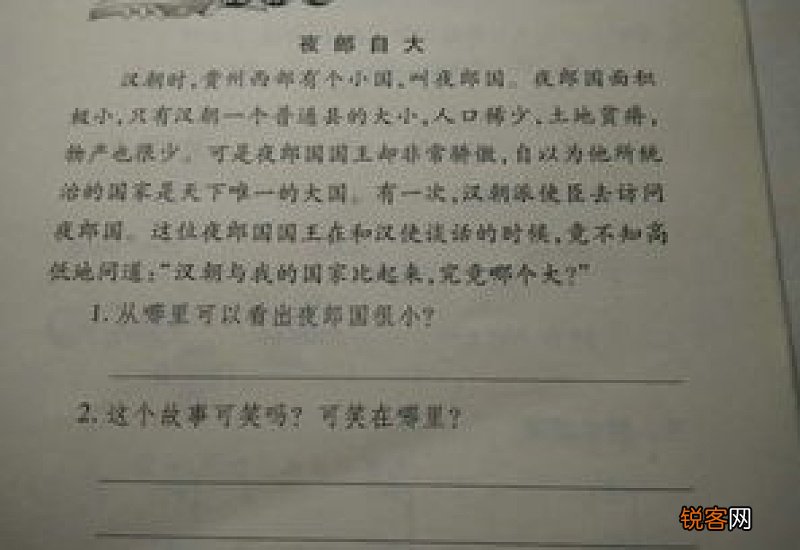 夜郎自大
汉朝时,贵州西部有个小国,叫夜郎国。夜郎国面积
极小,只有汉朝一个普通县的大小,人口稀少,土地贫瘠,
物产也很少。可是夜郎国国王却非常骄傲,自以为他所统
治的国家是天下唯一的大国。有一次,汉朝派使臣去访问
夜郎国。这位夜郎国国王在和汉使谈话的时候,竟不知高
低地问道:“汉朝与我的国家比起来,究竟哪个大?”
1.从哪里可以看出夜郎国很小?
2.这个故事可笑吗?可笑在哪里?
锐客网